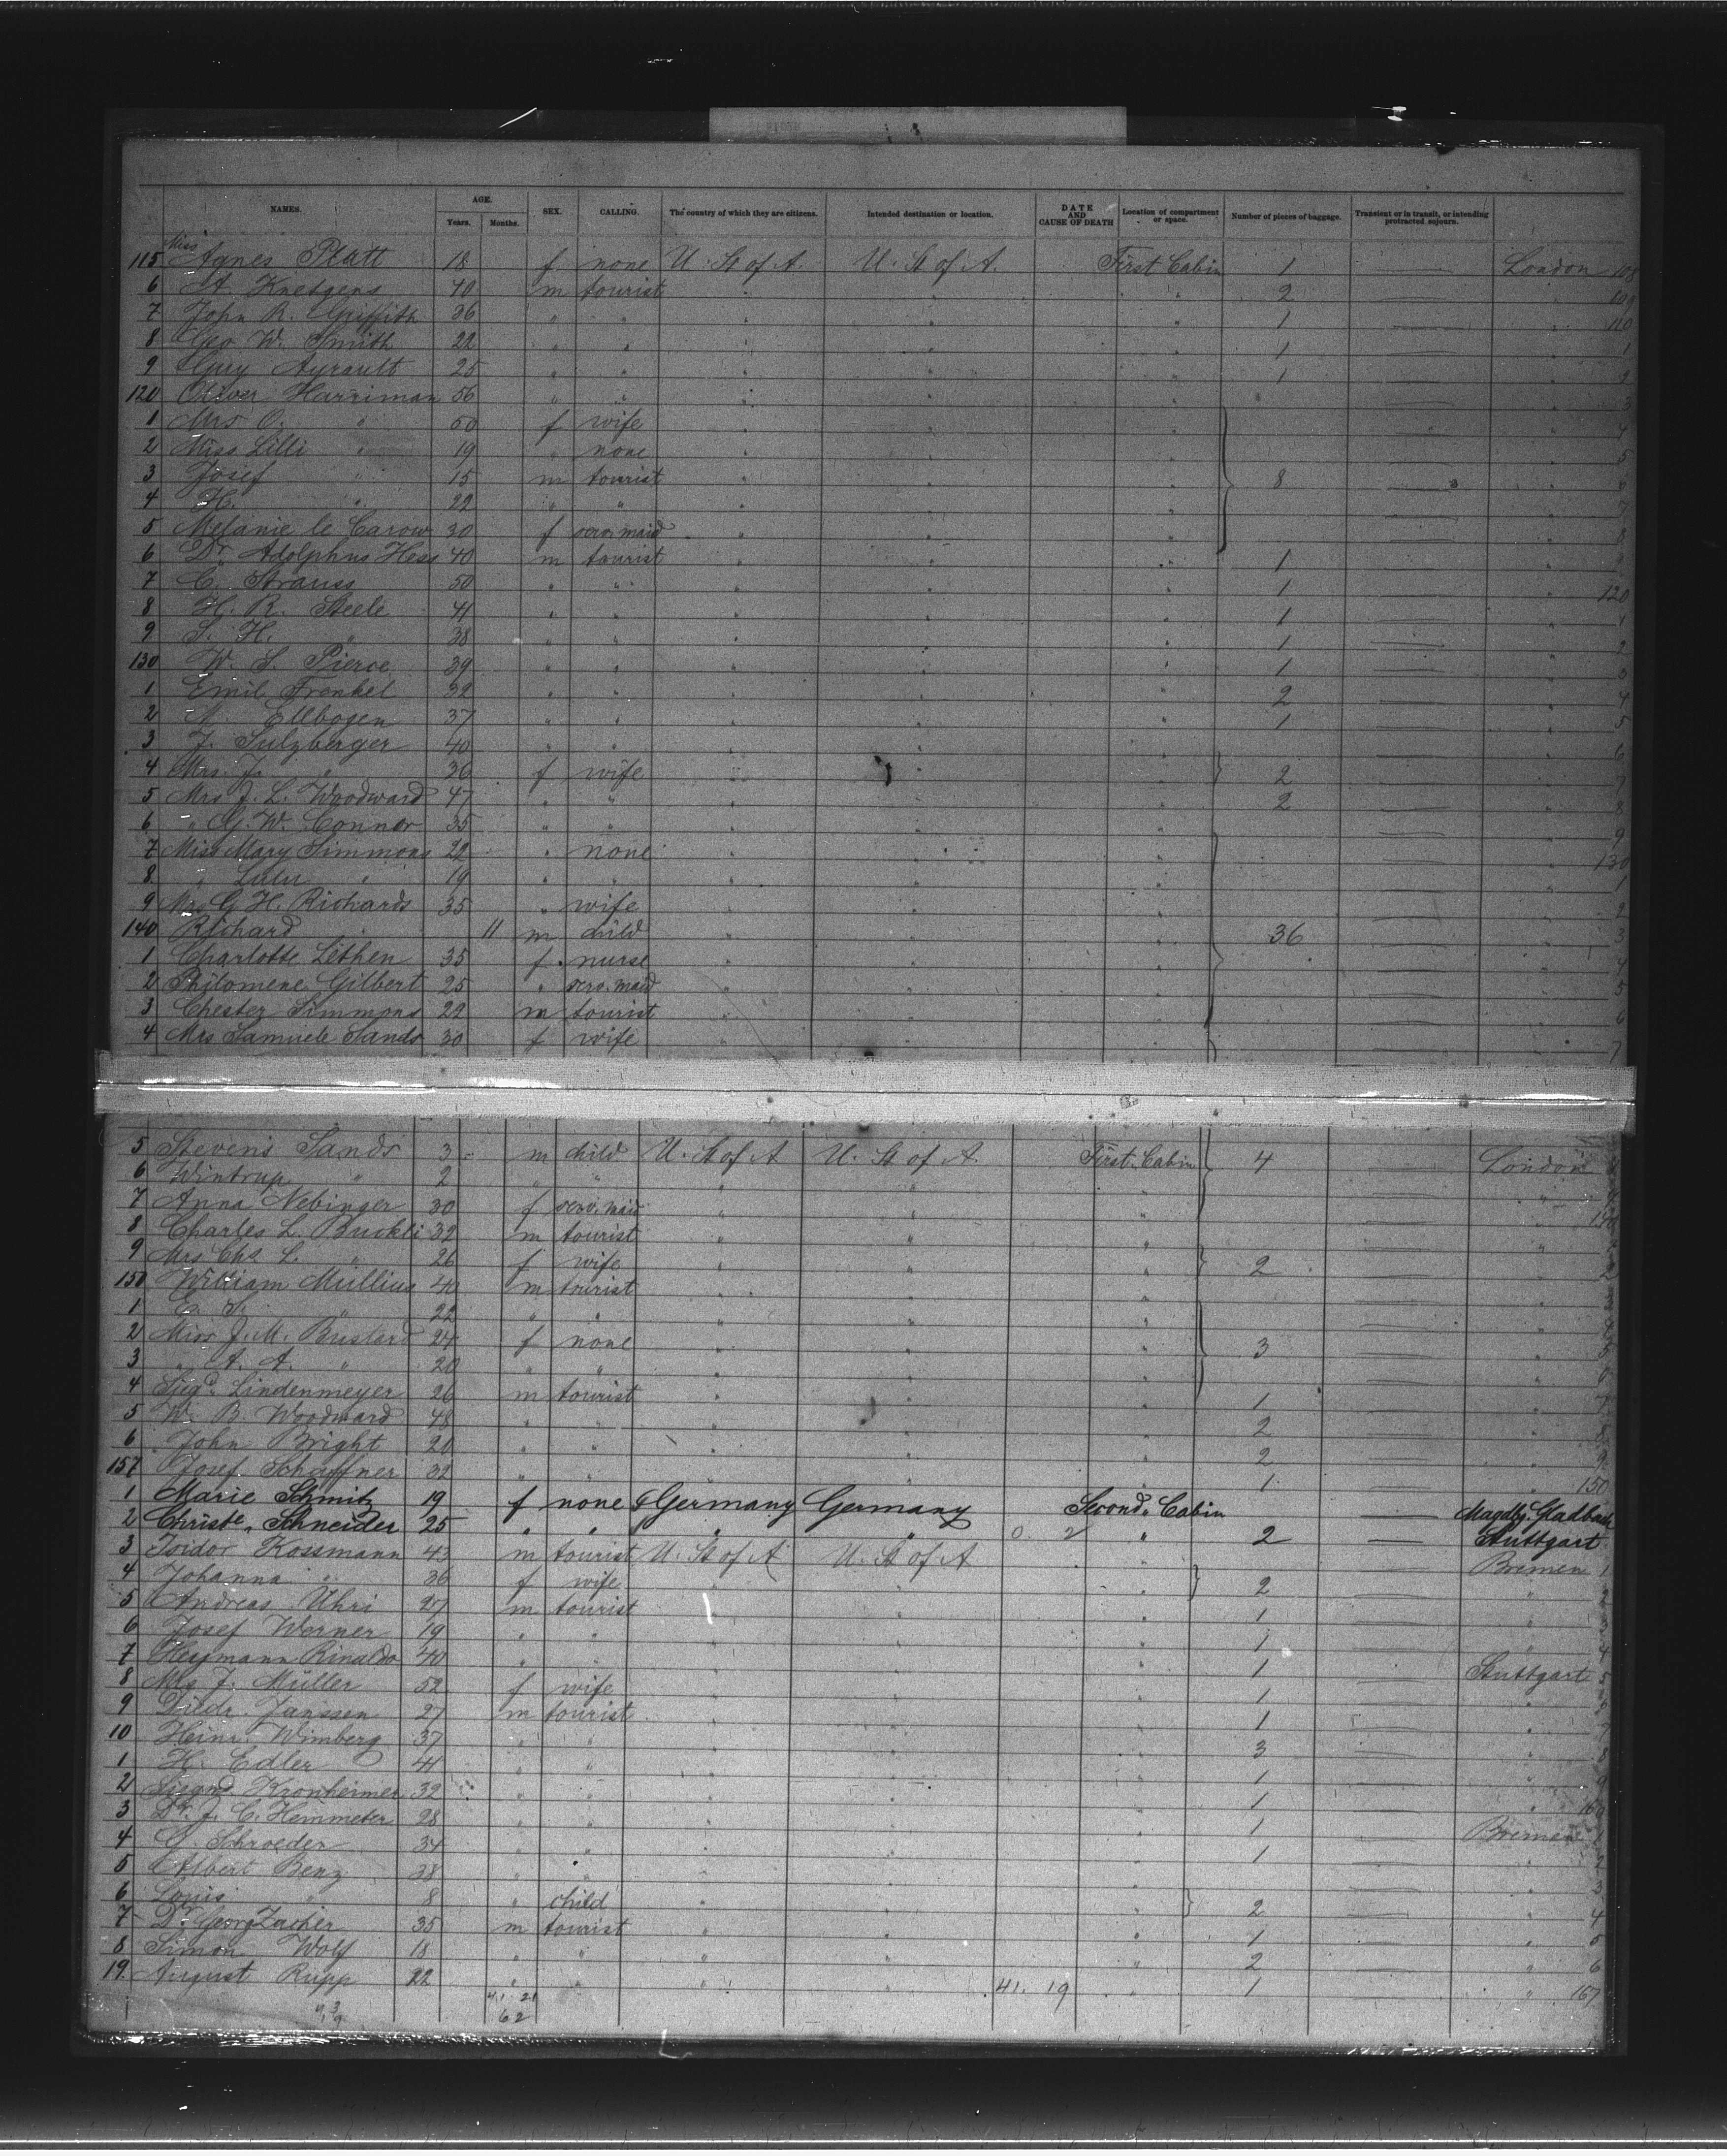 NAMES. AGE. Years. Months. SEX. CALLING. The country of which they are citizens. Intended destination or location. DATE AND CAUSE OF DEATH Location of compartment or space. Number of pieces of baggage. Transient or in transit, or intending protracted sojourn.
115 Miss Agnes Platt 18 f none U. St of A. U. St of A. First Cabin 1 London 108
6 A Knetgens 40 m tourist " " " 2
7 John R. Griffith 36 " " " " " 1 110
8 Geo W. Smith 22 " " " " " 1 1
9 Guy Ayrault 25 " " " " " 1 2
120 Oliver Harriman 56 " " " " " 3
1 Mrs O. " 50 f wife " " " 4
2 Miss Lilli " 19 " none " " " 5
3 Josef " 15 m tourist " " " 8 6
4 H. " 22 " " " " " 7
5 Melanie le Carow 30 f serv. maid " " " 8
6 Dr. Adolphus Hess 40 m tourist " " " 1 9
7 C. Strauss 50 " " " " " 1 120
8 H. R. Steele 41 " " " " " 1 1
9 S. H. " 38 " " " " " 1 2
130 W. S. Pierce 39 " " " " " 1 3
1 Emil Frenkel 32 " " " " " 2 4
2 N. Ellbogen 37 " " " " " 1 5
3 J. Sulzberger 40 " " " " " 6
4 Mrs. J. " 36 f wife " " " 2 7
5 Mrs J. L. Woodward 47 " " " " " 2 8
6 " G. W. Connor 35 " " " " " 9
7 Miss Mary Simmons 22 " none " " " 130
8 " Lulu " 19 " " " " " 1
9 Mrs G H. Richards 35 " wife " " " 2
140 Richard 11 m child " " " 36 3
1 Charlotte Lethen 35 f nurse " " " 4
2 Philomene Gilbert 25 " serv. maid " " " 5
3 Chester Simmons 22 m tourist " " " 6
4 Mrs Samuele Sands 30 f wife " " " 7
5 Stevens Sands 3 m child U. St of A U. St of A. First Cabin 4 London
6 Wintrup " 2 " " " " "
7 Anna Nebinger 30 f serv. maid " " "
8 Charles L. Buckli 32 m tourist " " "
9 Mrs Chs L. " 26 f wife " " " 2
150 William Müllius 40 m tourist " " "
1 " 22 " " " " "
2 Miss J. M. Bustard 24 f none " " " 3 5
3 " A. A. " 20 " " " " " 6
4 Siegd. Lindenmeyer 26 m tourist " " " 1 7
5 W. B. Woodward 48 " " " " " 2
6 John Bright 20 " " " " " 2 9
157 Josef Schaffner 32 " " " " " 1 150
1 Marie Schmitz 19 f none Germany Germany Second Cabin Gladbach
2 Christe. Schneider 25 " " " " 0 2 " 2 Stuttgart
3 Isidor Kossmann 43 m tourist U. St of A U. St of A " Bremen 1
4 Johanna " 36 f wife " " " 2 " 2
5 Andreas Uhri 27 m tourist " " " 1 " 3
6 Josef Werner 19 " " " " " 1 " 4
7 Heymann Rinaldo 40 " " " " " 1 Stuttgart 5
8 Mrs J. Müller 52 f wife " " " 1 "
9 Diedr. Janssen 27 m tourist " " " 1 " 7
10 Heinr. Wimberg 37 " " " " " 3 " 8
1 H. Edler 41 " " " " " 1 " 9
2 Siegmd Kronheimer 32 " " " " " 1 "
3 Dr. J. C. Hemmeter 28 " " " " " 1 Bremen 1
4 O. Schroeder 34 " " " " " 1 " 2
5 Albert Benz 38 " " " " " " 3
6 Louis " 8 " child " " " 2 " 4
7 Dr. Georg Zacher 35 m tourist " " " 1 " 5
8 Simon Wolf 18 " " " " " 2 " 6
19. August Rupp 22 " " " " 41. 19 " 1 " 167
41 21
62